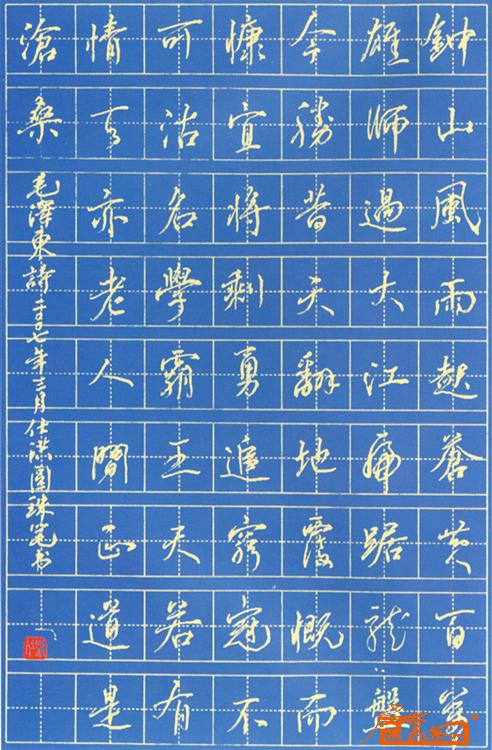 鈡山風雨起蒼黄百萬
雄師過大江虎踞龍盤
今勝昔天翻地覆慨而
慷宜將剩勇追窮寇不
可沽名學霸王天若有
情天亦老人間正道是
滄桑
毛澤東詩二〇〇七年三月仕洪圓珠笔书